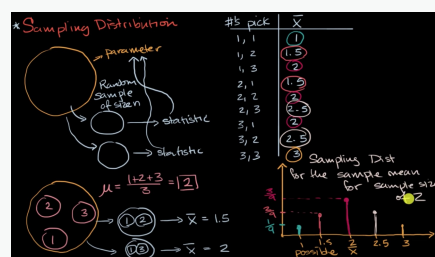 *Sampling Distribution
parameter
Random
sample
of size n
statistic
statistic
μ = 1+2+3 / 3 = 2
2
3
1
1 2 → x̄ = 1.5
1 3 → x̄ = 2
#'s pick x̄
1, 1 1
1, 2 1.5
1, 3 2
2, 1 1.5
2, 2 2
2, 3 2.5
3, 1 2
3, 2 2.5
3, 3 3
Sampling Dist
for the sample mean
for sample size
of 2
1 1.5 2 2.5 3
possible x̄